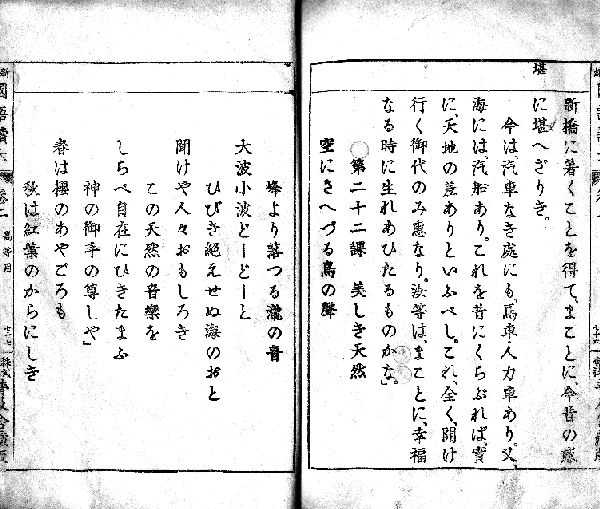 堪
新橋に著くことを得て、まことに、今昔の感
に堪へざりき。
今は汽車なき處にも、馬車人力車あり。又、
海には汽船あり。これを昔にくらぶれば實
に、天地の差ありといふべし。これ、全く、開け
行く御代のみ惠なり。汝等は、まことに、幸福
なる時に生れあひたるものかな。」
第二十二課 美しき天然
空にさへづる鳥の聲
峰より落つる瀧の音
大波小波とーとーと
ひびき絶えせぬ海のおと
聞けや人々おもしろき
この天然の音樂を
しらべ自在にひきたまふ
神の御手の尊しや」
春は櫻のあやごろも
秋は紅葉のからにしき
國語讀本 卷二 高等用